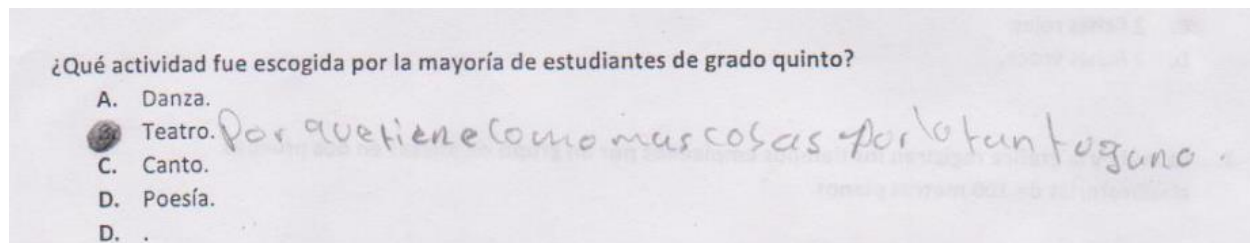 ¿Qué actividad fue escogida por la mayoría de estudiantes de grado quinto?
A. Danza.
Teatro. Por que tiene como mas cosas por lo tanto gano.
C. Canto.
D. Poesía.
D. .